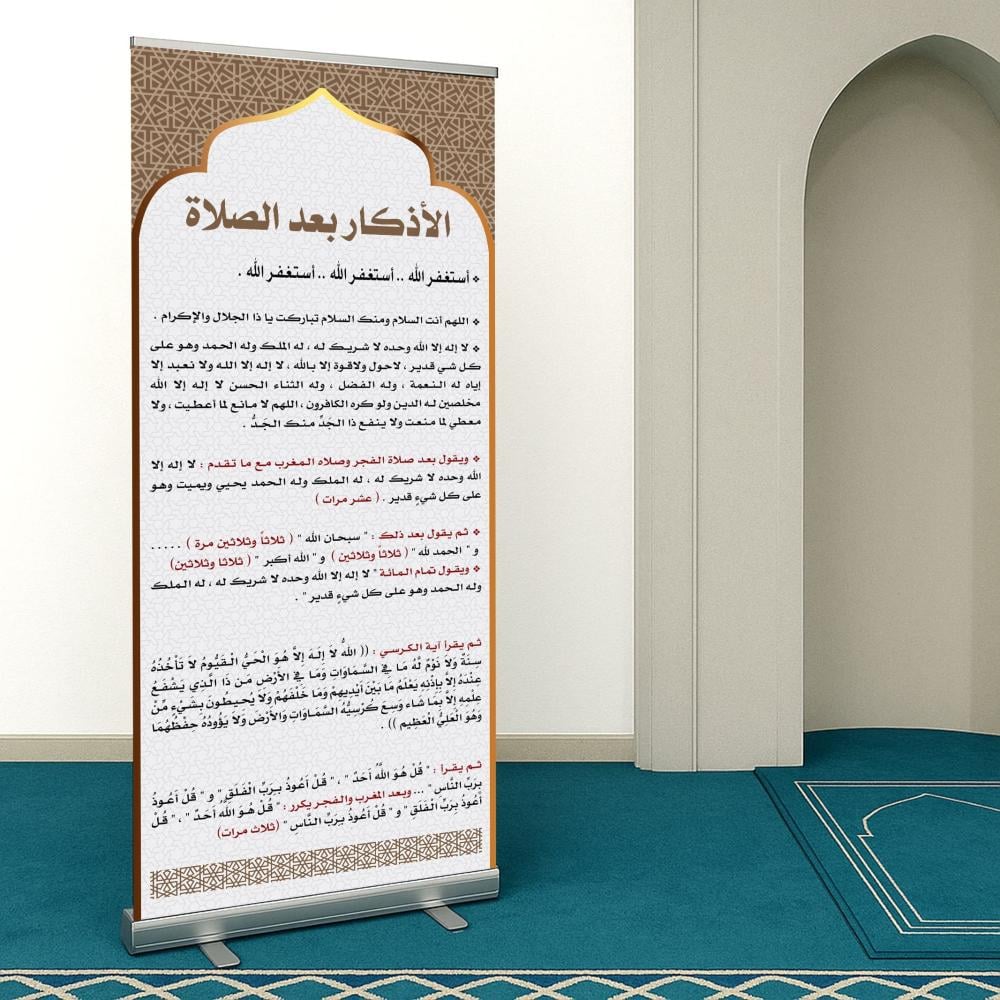 الأذكار بعد الصلاة
أستغفر الله .. أستغفر الله .. أستغفر الله .
اللهم أنت السلام ومنك السلام تباركت يا ذا الجلال والإكرام .
لا إله إلا الله وحده لا شريك له ، له الملك وله الحمد وهو على
كل شي قدير ، لاحول ولاقوة إلا بالله ، لا إله إلا الله ولا نعبد إلا
إياه له النعمة ، وله الفضل ، وله الثناء الحسن لا إله إلا الله
مخلصين له الدين ولو كره الكافرون ، اللهم لا مانع لما أعطيت ، ولا
معطي لما منعت ولا ينفع ذا الجَدِّ منك الجَدُّ .
ويقول بعد صلاة الفجر وصلاه المغرب مع ما تقدم : لا إله إلا
الله وحده لا شريك له ، له الملك وله الحمد يحيي ويميت وهو
على كل شيءٍ قدير . ( عشر مرات )
ثم يقول بعد ذلك : " سبحان الله " ( ثلاثاً وثلاثين مرة ) .....
و " الحمد لله " ( ثلاثاً وثلاثين ) و " الله أكبر " ( ثلاثا وثلاثين)
ويقول تمام المائة " لا إله إلا الله وحده لا شريك له ، له الملك
وله الحمد وهو على كل شيءٍ قدير " .
ثم يقرأ آية الكرسي : (( اللَّهُ لاَ إِلَهَ إِلاَّ هُوَ الْحَيُّ الْقَيُّومُ لاَ تَأْخُذُهُ
سِنَةٌ وَلاَ نَوْمٌ لَّهُ مَا فِي السَّمَاوَاتِ وَمَا فِي الأَرْضِ مَن ذَا الَّذِي يَشْفَعُ
عِنْدَهُ إِلاَّ بِإِذْنِهِ يَعْلَمُ مَا بَيْنَ أَيْدِيهِمْ وَمَا خَلْفَهُمْ وَلاَ يُحِيطُونَ بِشَيْءٍ مِّنْ
عِلْمِهِ إِلاَّ بِمَا شَاء وَسِعَ كُرْسِيُّهُ السَّمَاوَاتِ وَالأَرْضَ وَلاَ يَؤُودُهُ حِفْظُهُمَا
وَهُوَ الْعَلِيُّ الْعَظِيم )) .
ثم يقرأ : " قُلْ هُوَ اللَّهُ أَحَدٌ " ، " قُلْ أَعُوذُ بِرَبِّ الْفَلَقِ " و " قُلْ أَعُوذُ
بِرَبِّ النَّاسِ " ... وبعد المغرب والفجر يكرر : " قُلْ هُوَ اللَّهُ أَحَدٌ " ، " قُلْ
أَعُوذُ بِرَبِّ الْفَلَقِ " و " قُلْ أَعُوذُ بِرَبِّ النَّاسِ " (ثلاث مرات)